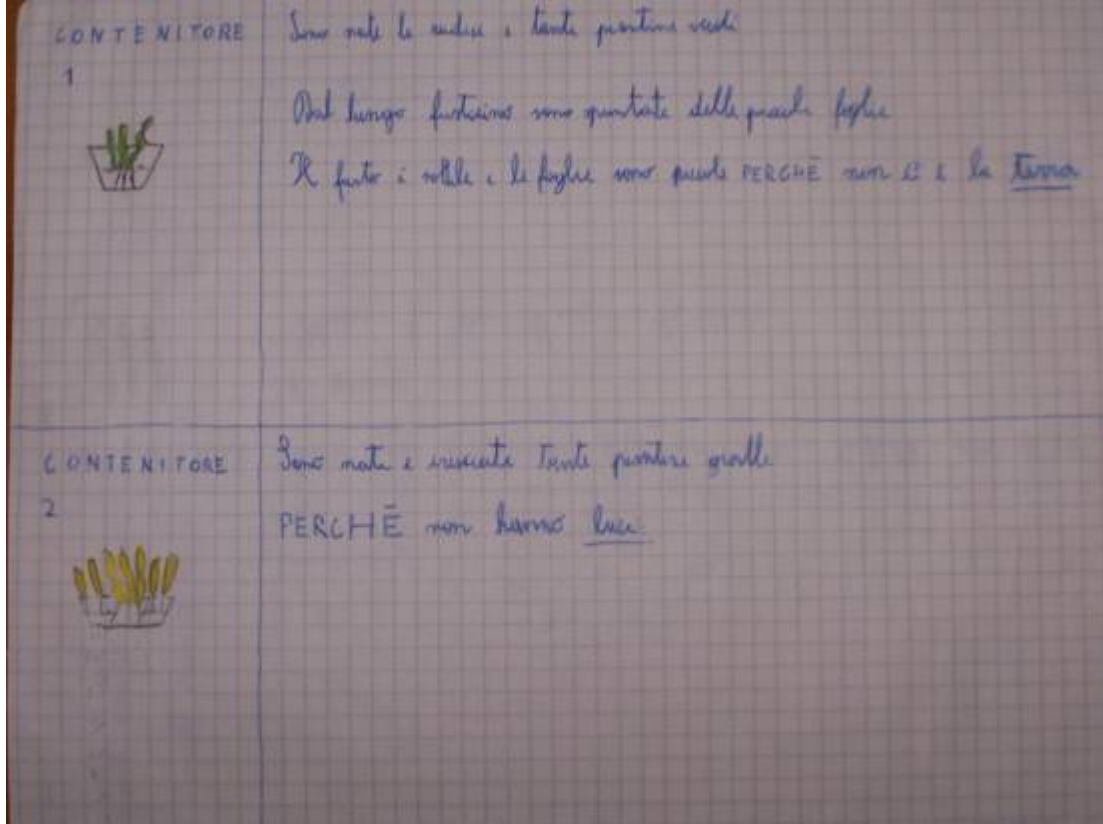 CONTENITORE
1
Sono nate le radici e tante piantine verdi
Dal lungo fusticino sono spuntate delle piccole foglie
Il fusto è sottile e le foglie sono piccole PERCHÉ non c'è la terra
CONTENITORE
2
Sono nate e cresciute tante piantine gialle
PERCHÉ non hanno luce